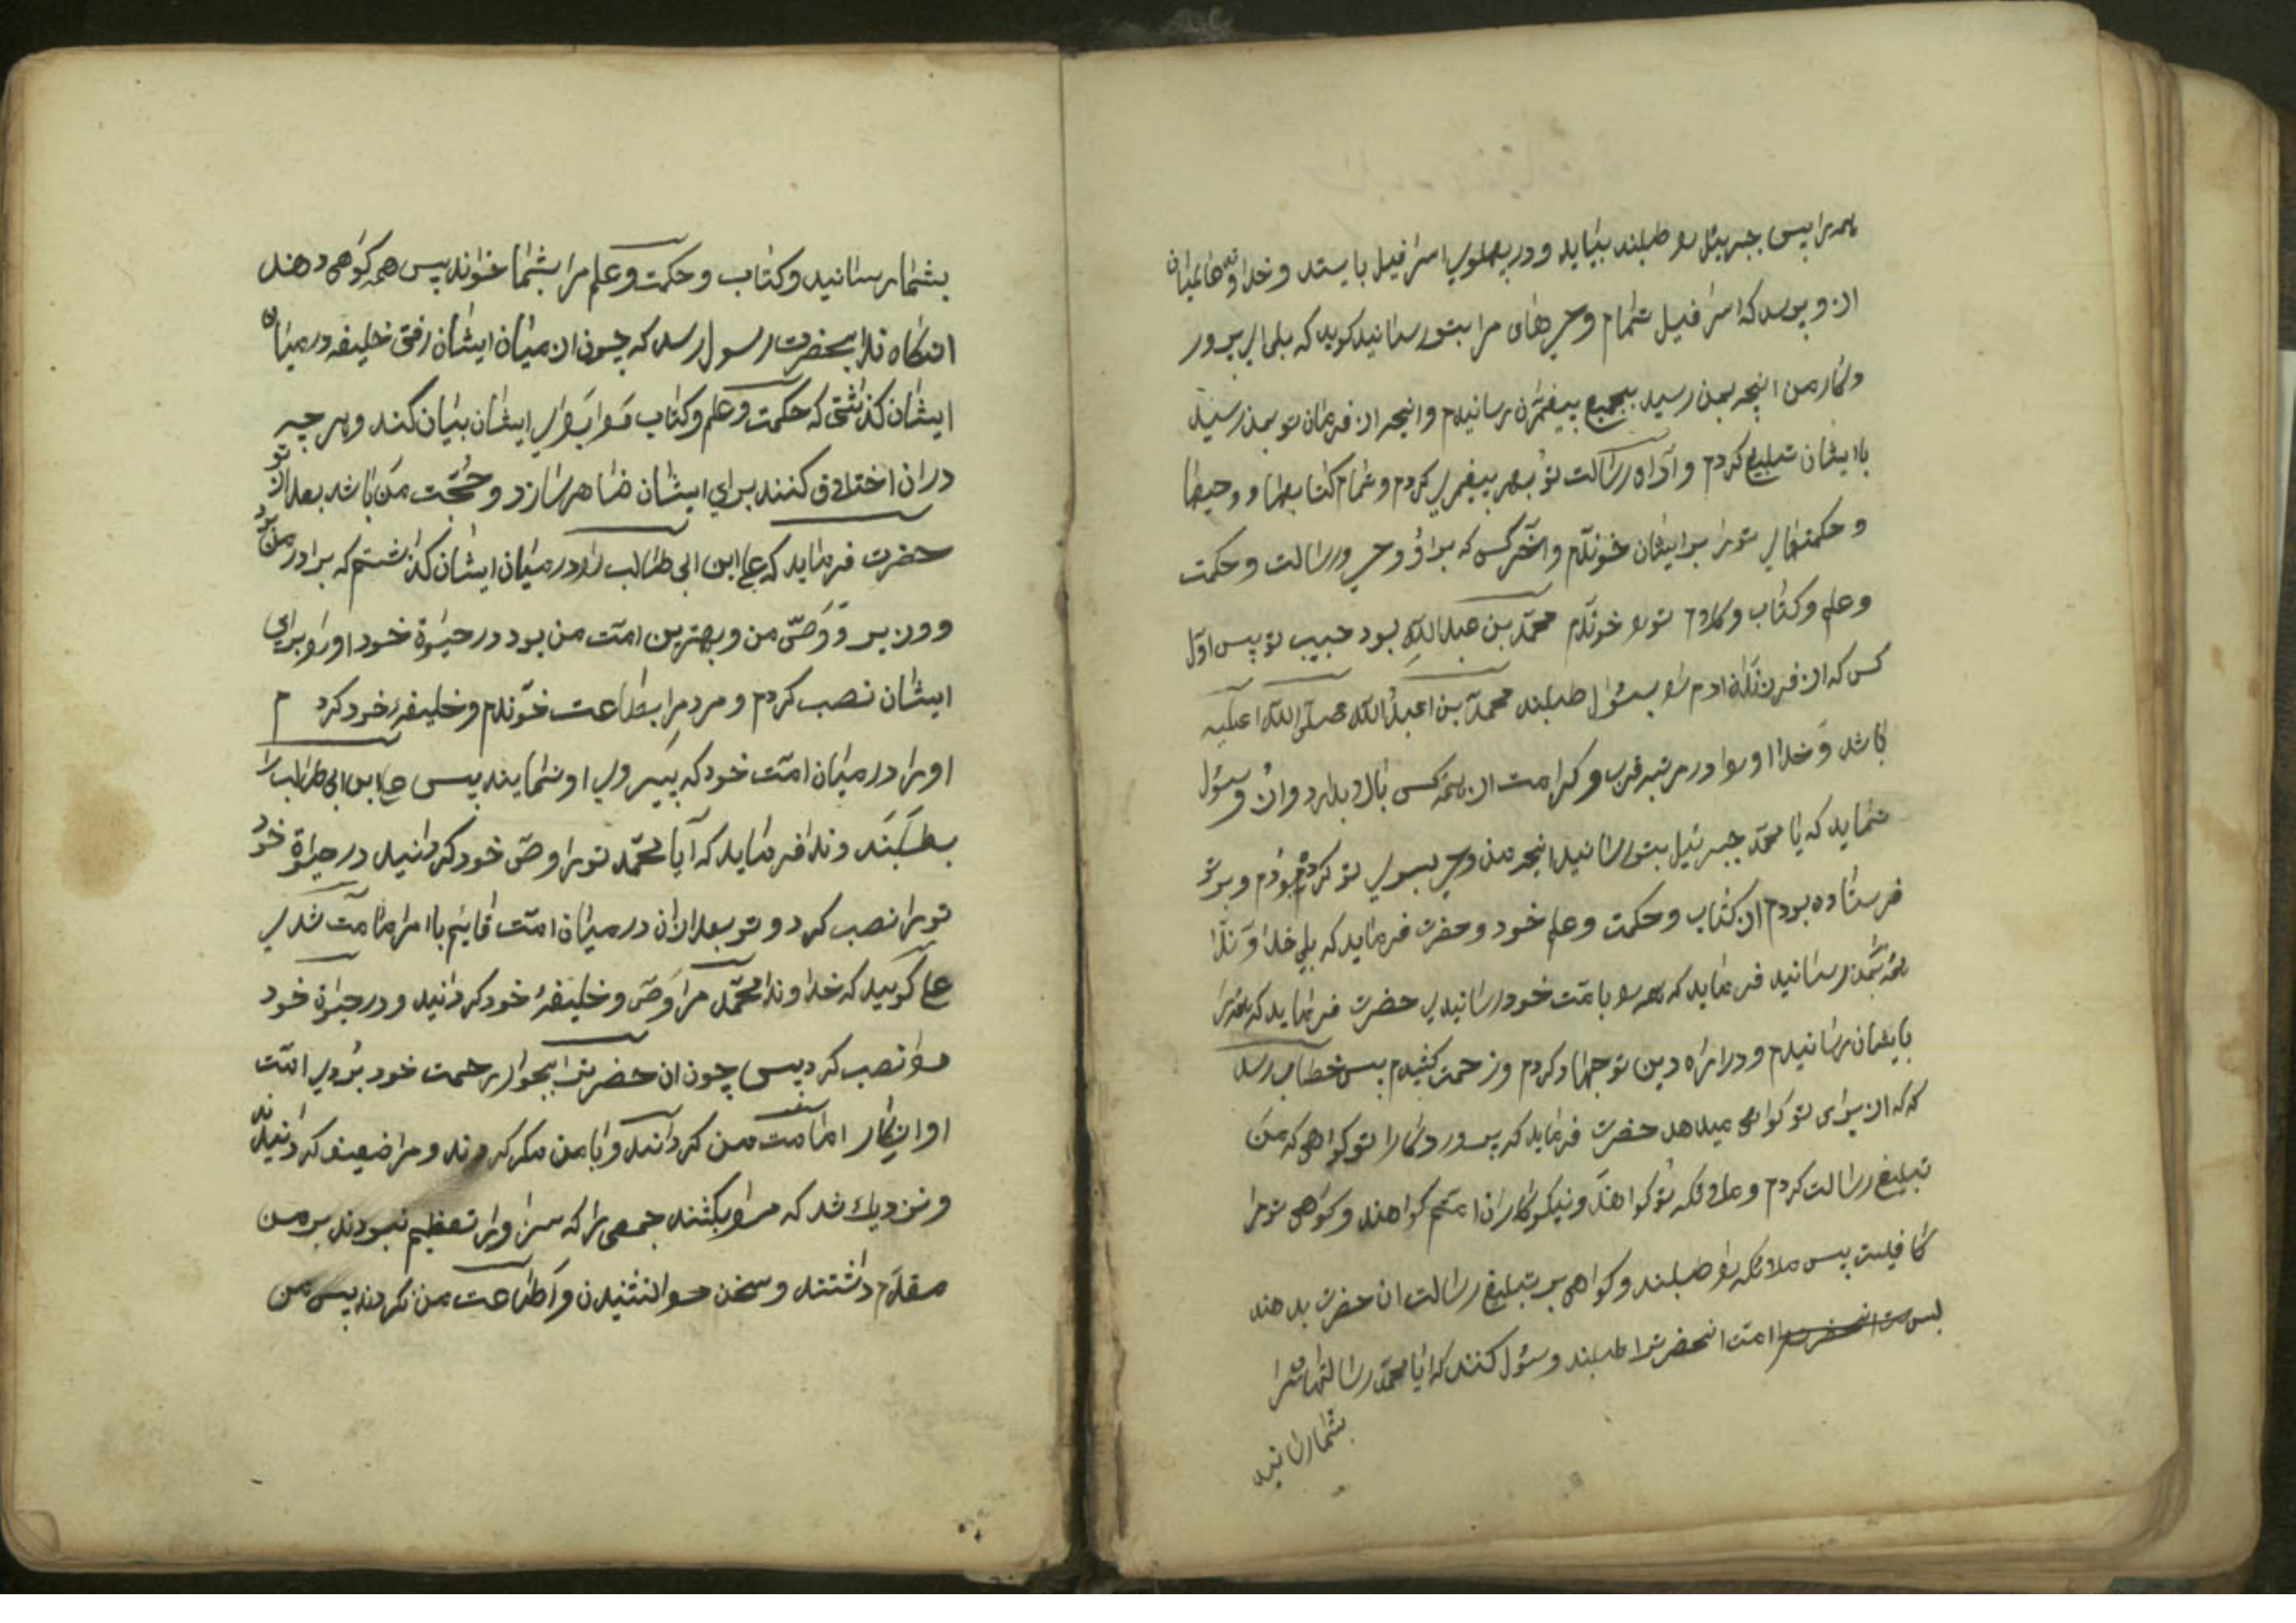 همه را پس جبرئیل را طلبند بیاید و در پهلوی اسرافیل بایستد و خداوند عالمیان
از و پرسد که اسرافیل تمام وحی های مرا بتو رسانید کوید که بلی ای پرور
دکار من انچه بمن رسید بجمیع پیغمبران رسانیدم و انچه از فرمان تو بمن رسید
با ایشان تبلیغ کردم و اداء رسالت تو بهر پیغمبری کردم و تمام کتابها و وحیها
و حکمتهای تو را بر ایشان خوندم و اخر کس که بر او وحی و رسالت و حکمت
و علم و کتاب و کلام تو را خوندم محمد بن عبدالله بود حبیب تو پس اول
کس که از فرزندان ادم را بسؤل طلبند محمد بن اعبدالله صلی الله اعلیه
باشد و خدا او را در مرتبه قرب و کرامت از همه کس بالا بدارد و ازو سؤل
نماید که یا محمد جبرئیل بتو رسانید انچه من وحی بسوی تو کرده بودم و بر تو
فرستاده بودم از کتاب و حکمت و علم خود و حضرت فرماید که بلی خداوندا
همه بمن رسانید فرماید که همه را بامت خود رسانیدی حضرت فرماید که همه را
بایشان رسانیدم و در راه دین تو جهاد کردم و زحمت کشیدم پس خطاب رسد
که که از برای تو کواهی میدهد حضرت فرماید که پروردکارا تو کواهی که من
تبلیغ رسالت کردم و ملائکه تو کواهند و نیکوکاران امتم کواهند و کواهی تو مرا
کافیست پس ملائکه را طلبند و کواهی بر تبلیغ رسالت ان حضرت بدهند
پس امت انحضرت را طلبند و سؤل کنند که ایا محمد رسالتهای مرا
بشما رسانید
بشما رسانید و کتاب و حکمت و علم مرا بشما خواند پس همه کواهی دهند
انکاه ندا بحضرت رسول رسد که چون از میان ایشان رفتی خلیفه در میان
ایشان کذاشتی که حکمت و علم و کتاب مرا برای ایشان بیان کند و هر چه
در ان اختلاف کنند برای ایشان ظاهر سازد و حجت من باشد بعد از تو
حضرت فرماید که علی ابن ابی طالب را در میان ایشان کذاشتم که برادر من بود
و وزیر و وصی من و بهترین امت من بود در حیوة خود او را برای
ایشان نصب کردم و مردم را بطاعت خوندم و خلیفهٔ خود کردم
او را در میان امت خود که پیروی او نمایند پس علی ابن ابی طالب را
بطلبند و ندا فرماید که آیا محمد تو را وصی خود کردانید در حیوة خود
تو را نصب کرد و تو بعد از ان در میان امت قایم با امر امامت شدی
علی کویید که خداوندا محمد مرا وصی و خلیفهٔ خود کردانید و در حیوة خود
مرا نصب کرد پس چون ان حضرت را بجوار رحمت خود بردی امت
او انکار امامت من کردانند و با من مکر کردند و مرا ضعیف کردانیدند
و نزدیک شد که مرا بکشند جمعی را که سزاوار تعظیم نبودند بر من
مقدم داشتند و سخن مرا نشنیدن و اطاعت من نکردند پس من